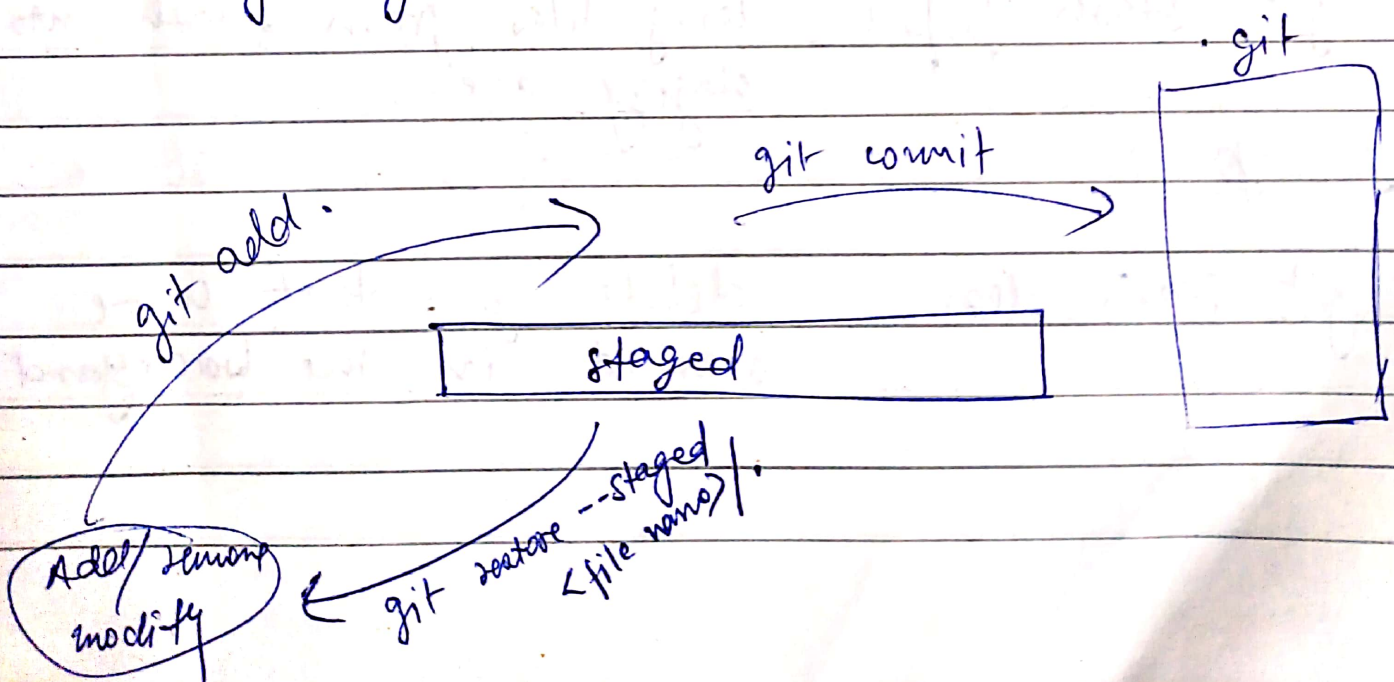 . git
git commit
git add .
staged
git restore --staged
<file name> | .
Add/remove
modify